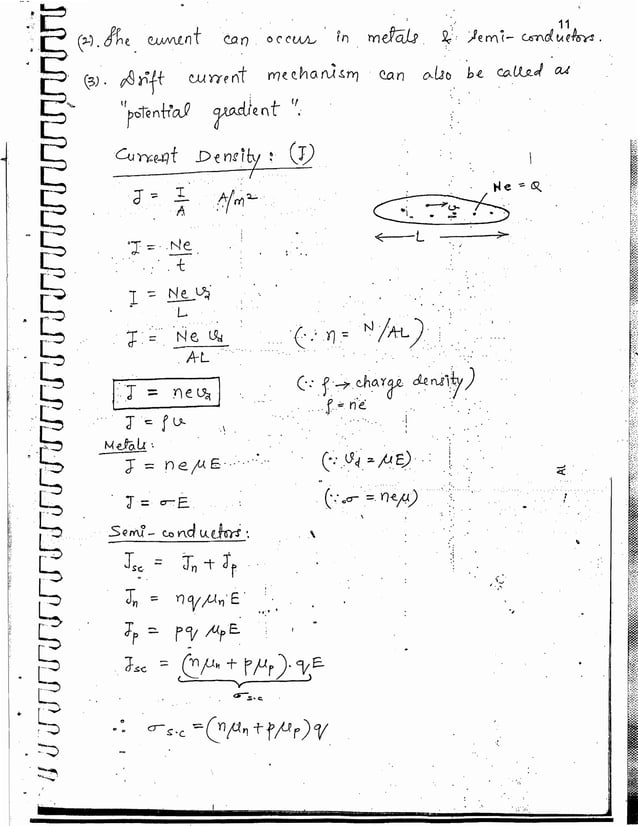 11
(2). The current can occur in metals & Semi-conductors.
(3). Drift current mechanism can also be called as
"potential gradient".
Current Density : (J)
J = I/A A/m²
Ne = Q
v
L
I = Ne/t
I = Ne vd/L
J = Ne vd/AL (∵ n = N/AL)
J = nevd (∵ ρ → charge density)
ρ = ne
J = ρv
Metals:
J = neμE (∵ vd = μE)
J = σE (∵ σ = neμ)
Semi-conductors:
Jsc = Jn + Jp
Jn = nqμnE
Jp = pq μpE
Jsc = (nμn + pμp).qE
σs.c
∴ σs.c = (nμn + pμp)q